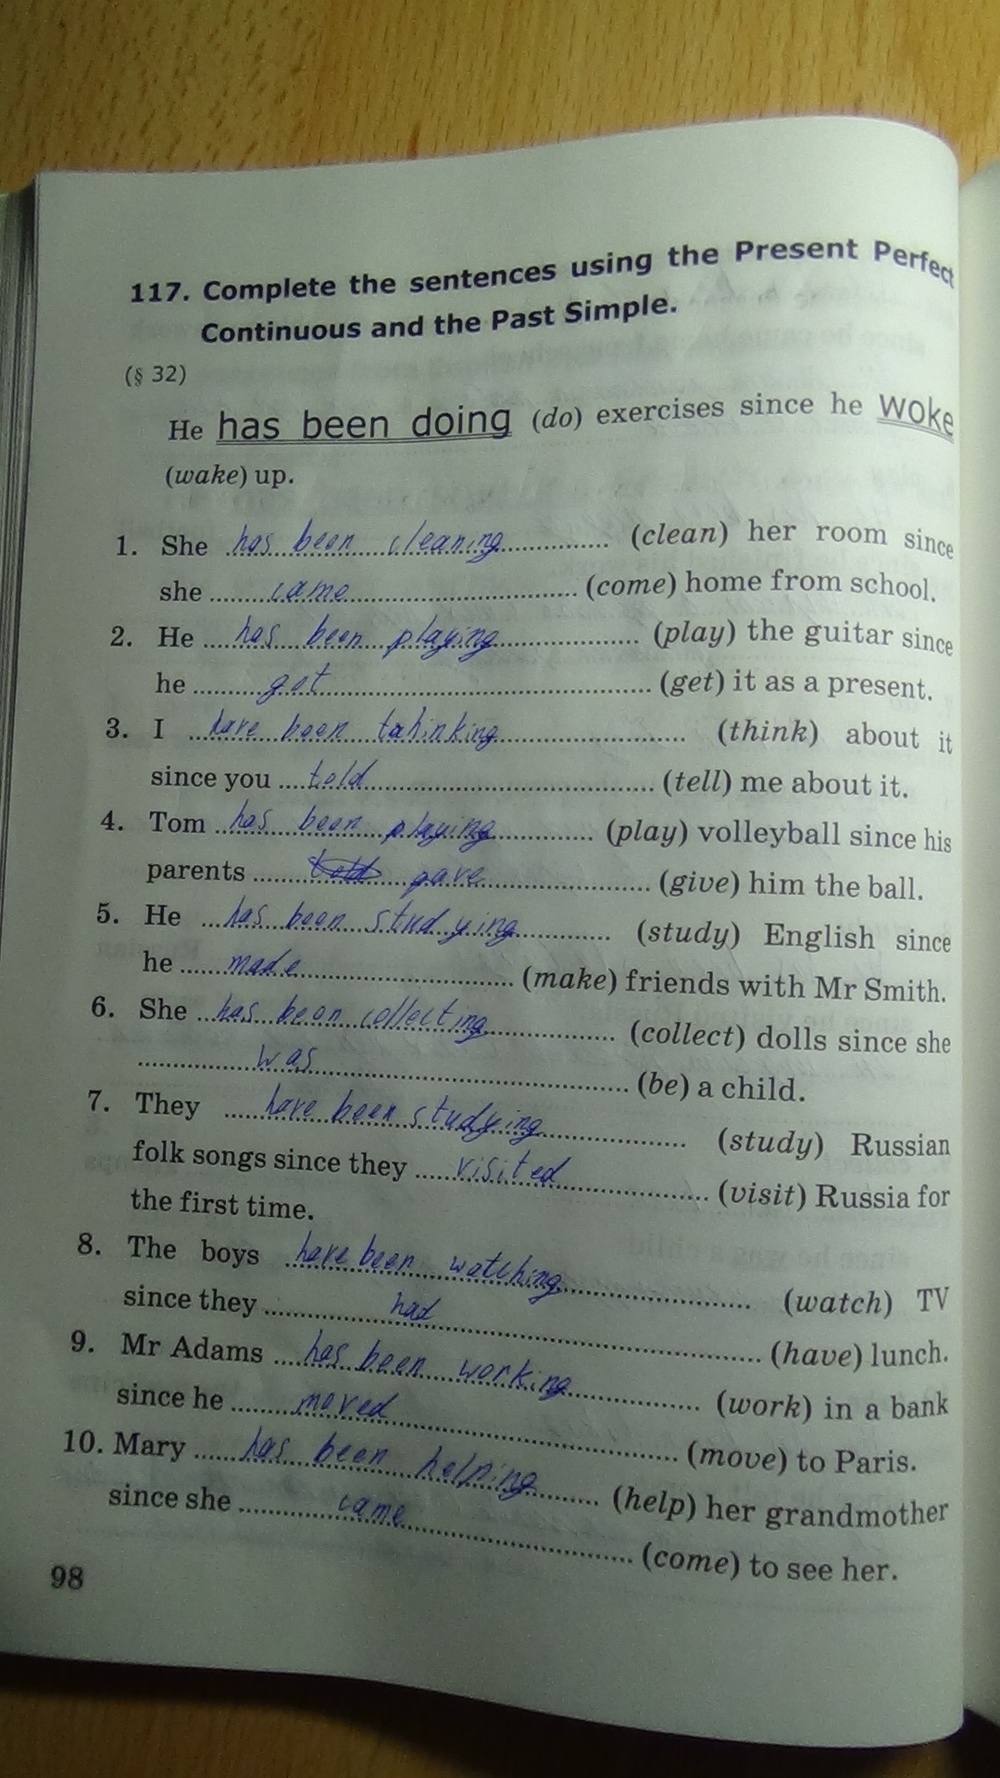 117. Complete the sentences using the Present Perfect
Continuous and the Past Simple.
(§ 32)
He has been doing (do) exercises since he woke
(wake) up.
1. She has been cleaning (clean) her room since
she came (come) home from school.
2. He has been playing (play) the guitar since
he got (get) it as a present.
3. I have been tahinking (think) about it
since you told (tell) me about it.
4. Tom has been playing (play) volleyball since his
parents told gave (give) him the ball.
5. He has been studying (study) English since
he made (make) friends with Mr Smith.
6. She has been collecting (collect) dolls since she
was (be) a child.
7. They have been studying (study) Russian
folk songs since they visited (visit) Russia for
the first time.
8. The boys have been watching (watch) TV
since they had (have) lunch.
9. Mr Adams has been working (work) in a bank
since he moved (move) to Paris.
10. Mary has been helping (help) her grandmother
since she came (come) to see her.
98